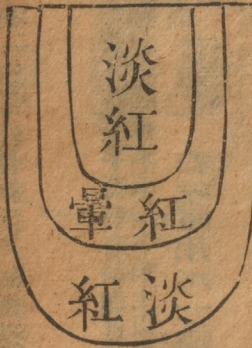 淡
紅
紅暈
淡紅